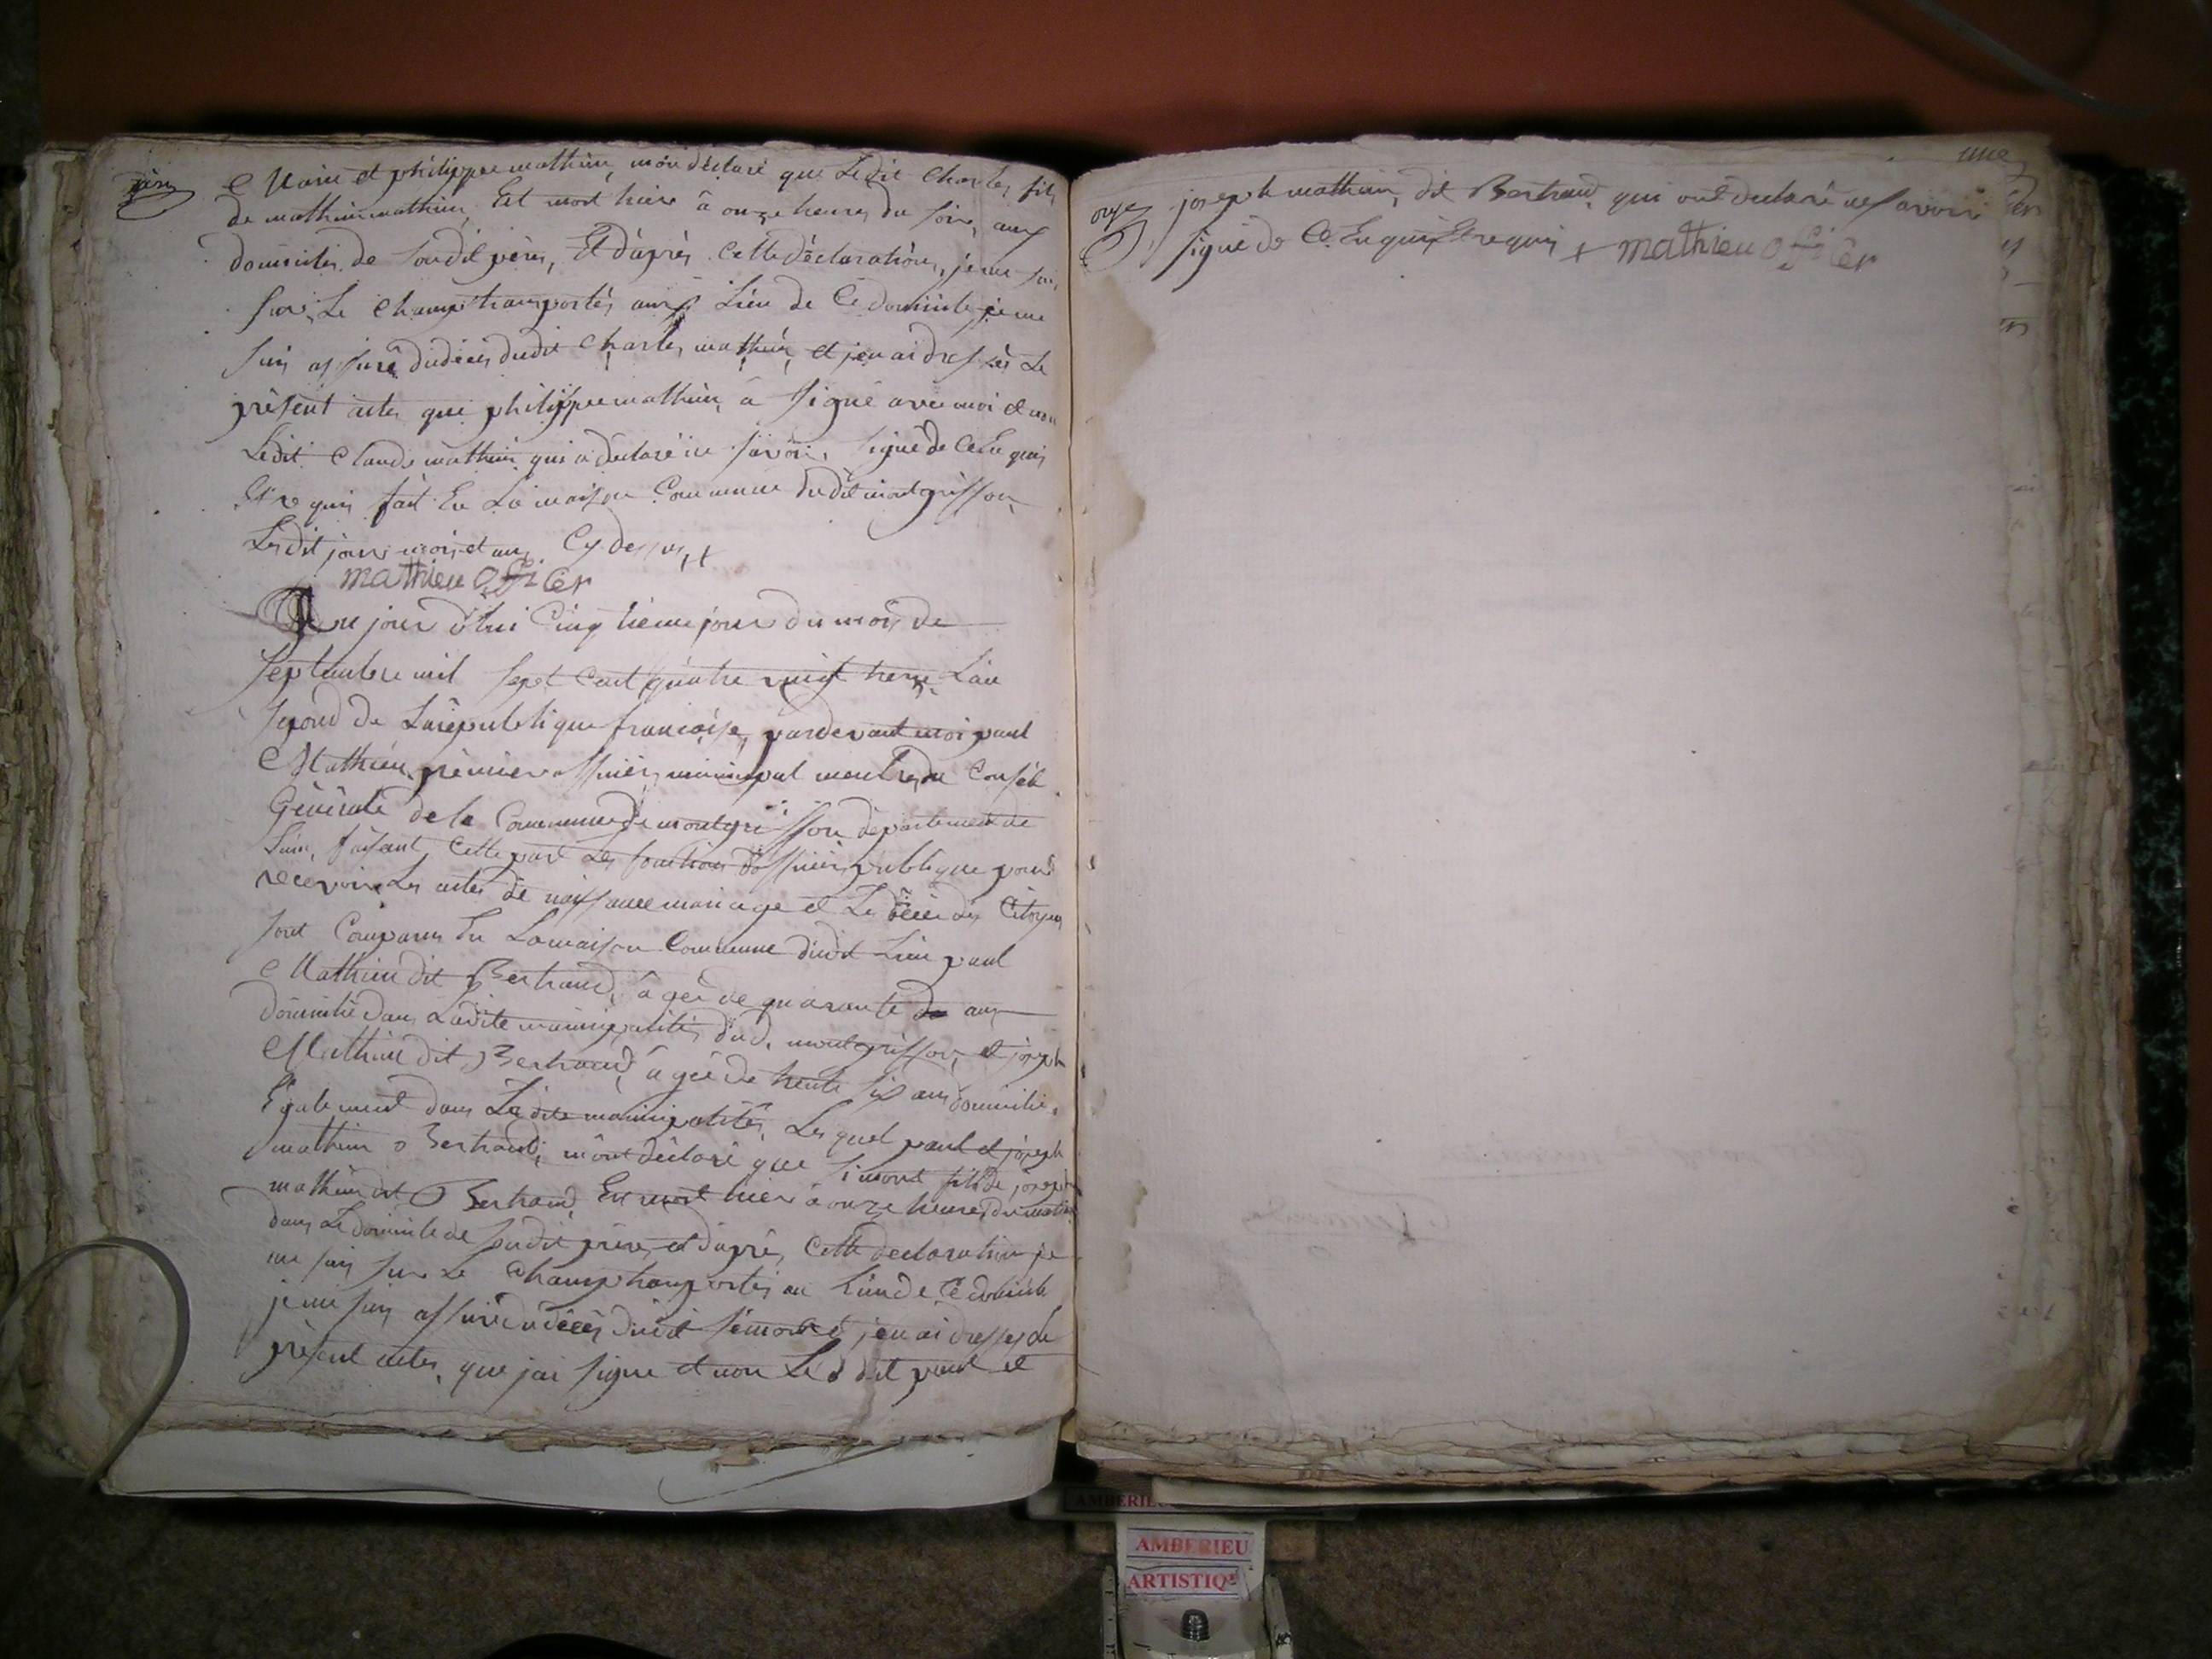 dix
Marie et philippe mathieu, mon déclaré que Ledit Charles fils
de mathieu mathieu, Est mort hière à onze heures du soire, aux
domiciles de Soudit père, Et d'aprés cette déclaration, je me suis
sur Le champ transportés aux Lieu de Ce domicile je me
suis assuré dudécès dudit Charles mathieu, et jen ai dressés Le
présent actes que philippe mathieu à Signé avec moi et non
Ledit Claude mathieu qui a déclaré ne savoir, signé de Ce Enquis
Et requis fait En La maison Commune dudit montgriffon,
Lesdit jour mois et ans Cy dessus, +
mathieu officer
Au jour d'hui Cinqtième jour du mois de
Septembre mil sept cent quatre vingt treize Lan
second de Larépublique francaise, pardevant moi paul
Mathieu premier officier municipal membre du Conseil
Générale de la Commune de montgriffon departement de
Lain, faisant cette part Les fonctions dofficier publique pour
recevoir Les actes de naissance mariage et Le décès des Citoyens
sont Comparus En Lamaison Commune dudit Lieu paul
Mathieu dit Bertrand, âgée de quarante ans
domicilié dans Ladite municipalités dud. montgriffon, et joseph
Mathieu dit Bertrand, âgée de trente six ans domicilié
Egalement dans Ladite municipalités, Lesquel paul et joseph
mathieu Bertrand, mont déclaré que Simont fils de joseph
mathieu dit Bertrand Est mort hier à onze heures du matin
dans Le domicile de Sondit père, et daprè, Cette declaration je
me suis sur Le Champ transportés au Lieu de Ce domicile
je me suis assuré dudécès dudit Simont & jen ai dresses Le
présent actes, que jai signe et non Lesdit paul et
onze
une
joseph mathieu, dit Bertrand, qui ont declaré ne savoir
signé de Ce Enquis Et requis + mathieu officer
AMBERIEU
ARTISTIQ